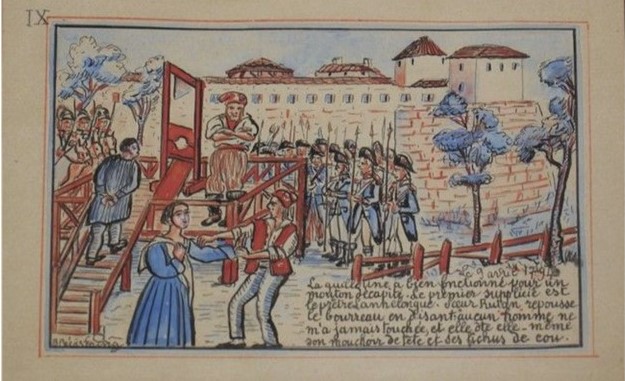 IX
Le 9 avril 1794
La guillotine a bien fonctionné pour un
mouton décapité. Le premier supplicié est
le prêtre Lantelongue. Sœur Rutan repousse
le bourreau en disant aucun homme ne
m'a jamais touchée, et elle ôte elle-même
son mouchoir de tête et ses fichus de cou.